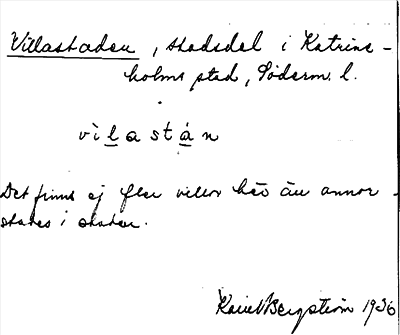 Villastaden, stadsdel i Katrine-
holms stad, Söderm. l.
vìlastán
Det finns ej fler villor här än annor-
stades i staden.
Bergström 1936